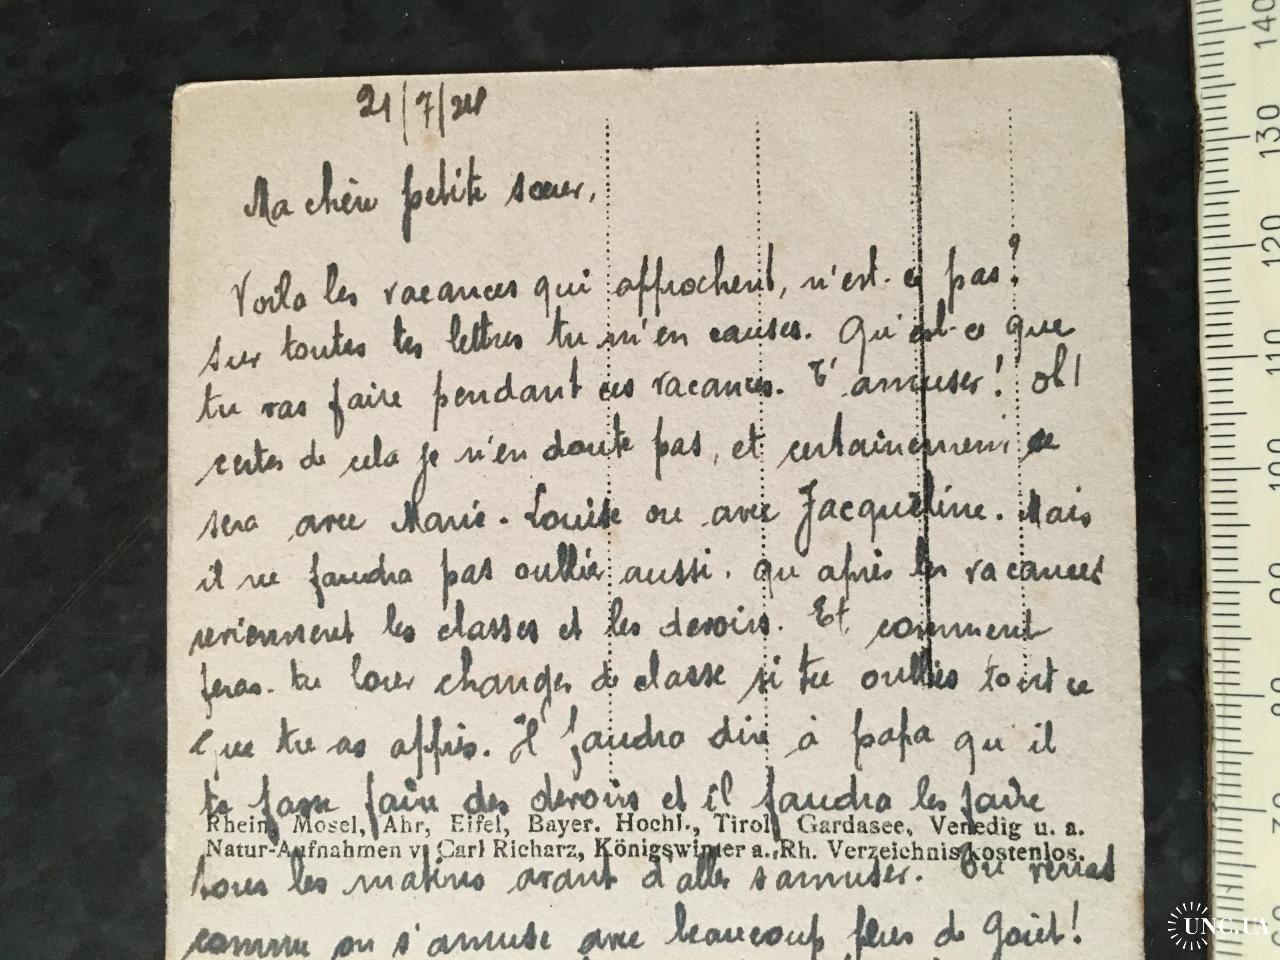 21/7/21
Ma chère petite sœur,
Voila les vacances qui approchent, n'est-ce pas?
Sur toutes tes lettres tu m'en causes. Qu'est-ce que
tu vas faire pendant ces vacances. T'amuser! oh!
certes de cela je n'en doute pas, et certainement ce
sera avec Marie-Louise ou avec Jacqueline. Mais
il ne faudra pas oublier aussi. qu'après les vacances
reviennent les classes et les devoirs. Et comment
feras-tu pour changer de classe si tu oublies tout ce
que tu as appris. Il faudra dire à papa qu'il
te fasse faire des devoirs et il faudra les faire
Rhein, Mosel, Ahr, Eifel, Bayer. Hochl., Tirol, Gardasee, Venedig u. a.
Natur-Aufnahmen v. Carl Richarz, Königswinter a. Rh. Verzeichnis kostenlos.
tous les matins avant d'aller s'amuser. Tu verras
comme on s'amuse avec beaucoup plus de goût!
140
130
120
110
100
90
80
UNC.UA